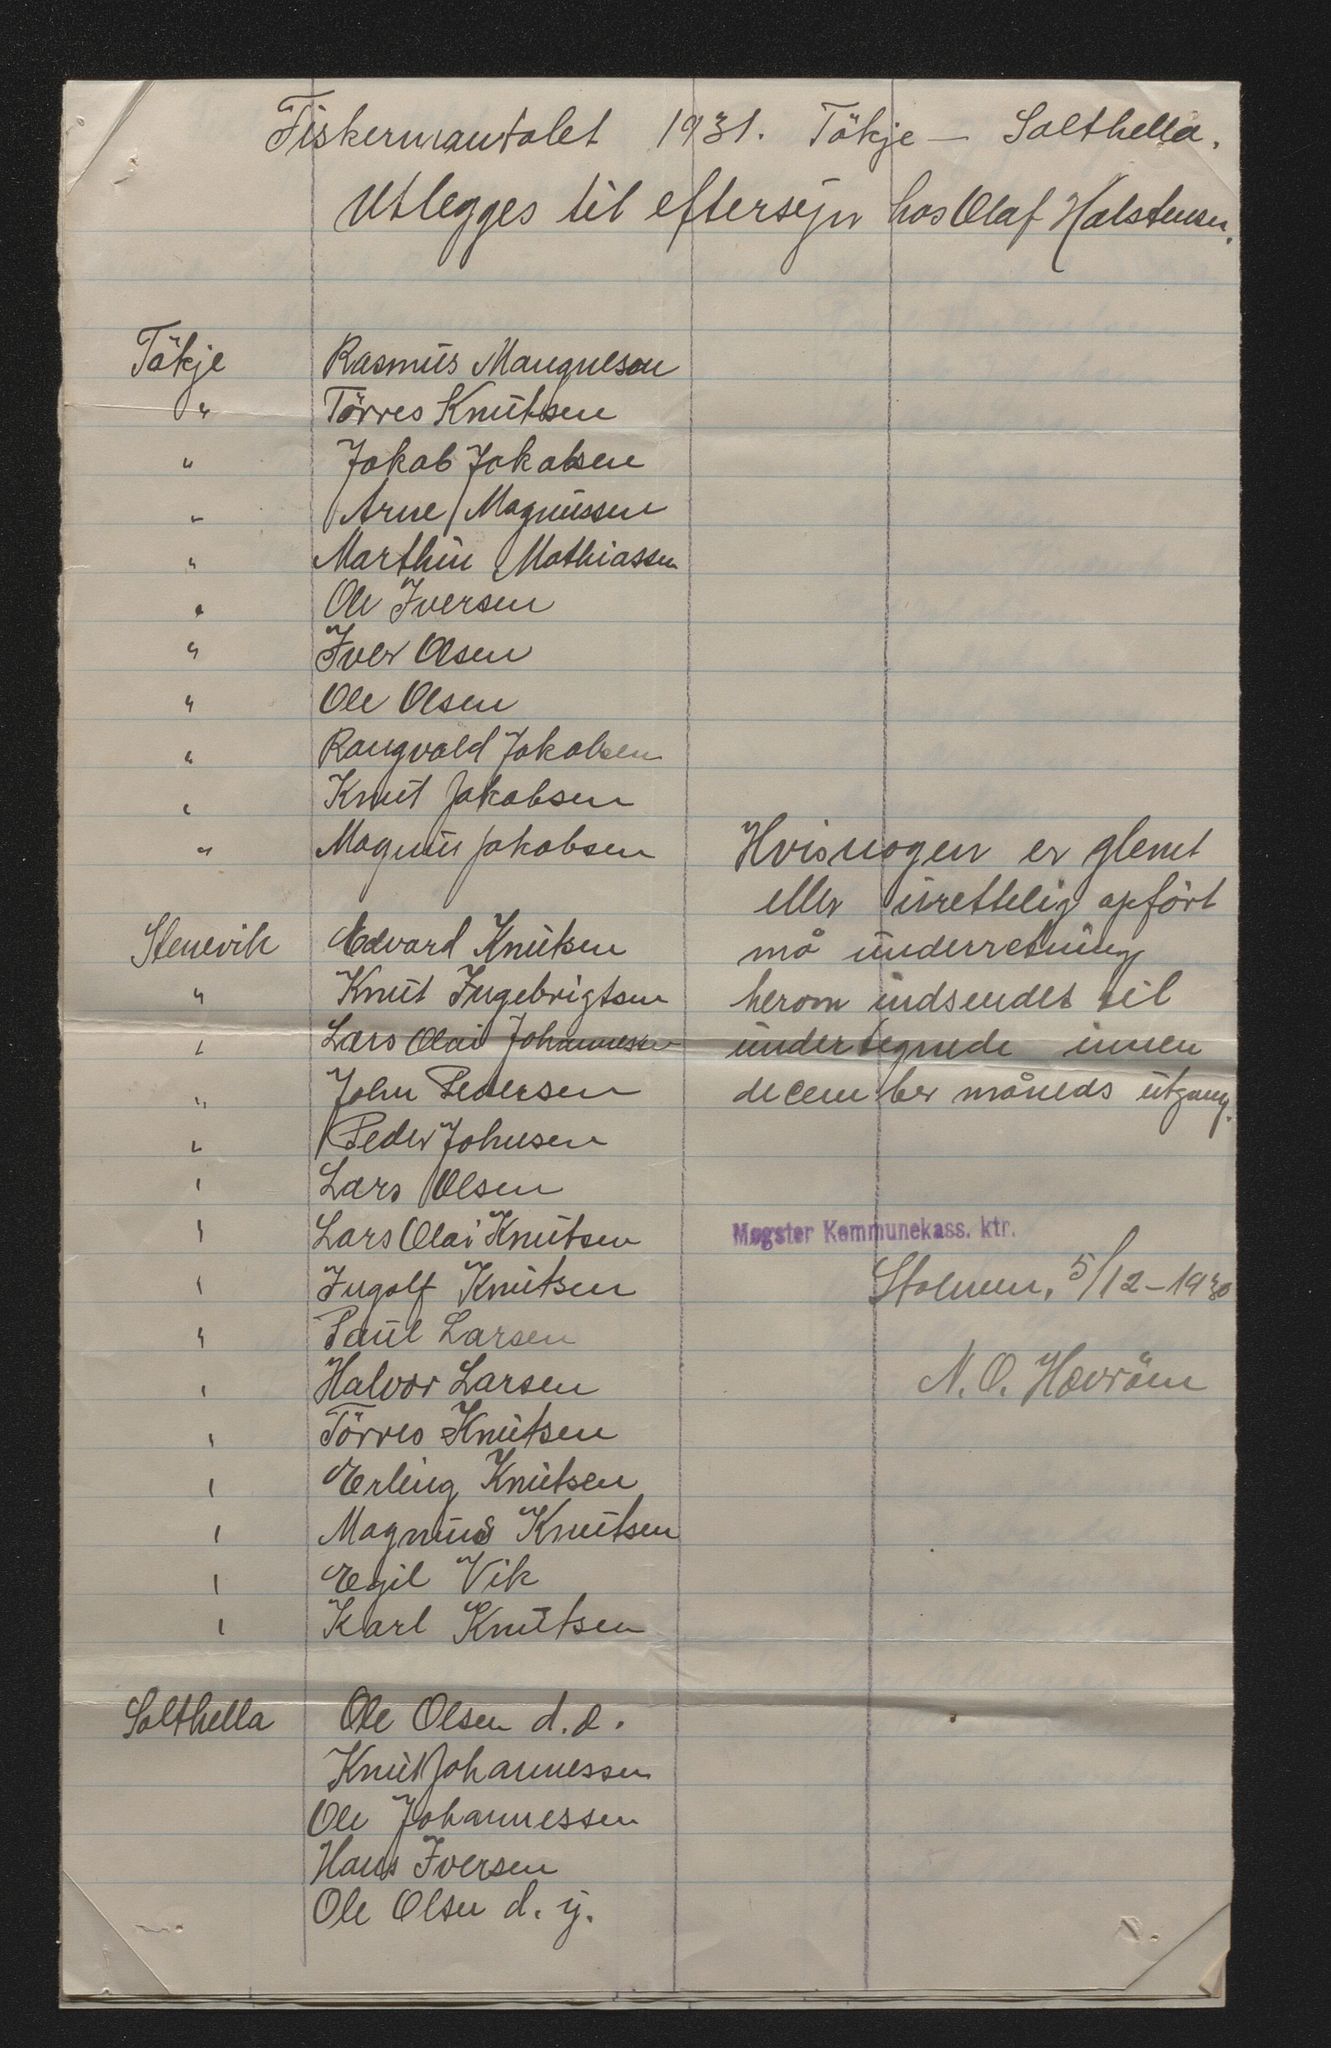 Fiskermantalet 1931. Tökje — Salthella.
Utlegges til eftersyn hos Olaf Halstensen.
Tökje Rasmus Mangnesen
" Törres Knutsen
" Jakob Jakobsen
" Arne Magnussen
" Marthin Mathiassen
" Ole Iversen
" Iver Olsen
" Ole Olsen
" Rangvald Jakobsen
" Knut Jakobsen
" Magnus Jakobsen
Stenevik Edvard Knutsen
" Knut Ingebrigtsen
" Lars Olai Johannessen
" John Pedersen
" Peder Johnsen
" Lars Olsen
" Lars Olai Knutsen
" Ingolf Knutsen
" Paul Larsen
" Halvor Larsen
" Törres Knutsen
" Erling Knutsen
" Magnus Knutsen
" Egil Vik
" Karl Knutsen
Salthella Ole Olsen d.e.
Knut Johannessen
Ole Johannessen
Hans Iversen
Ole Olsen d. y.
Hvis nogen er glemt
eller urettelig opfört
må underretning
herom indsendes til
undertegnede innen
december måneds utgang.
Møgster Kommunekass. ktr.
Stolmen, 5/12-1930
N. O. Hovröm